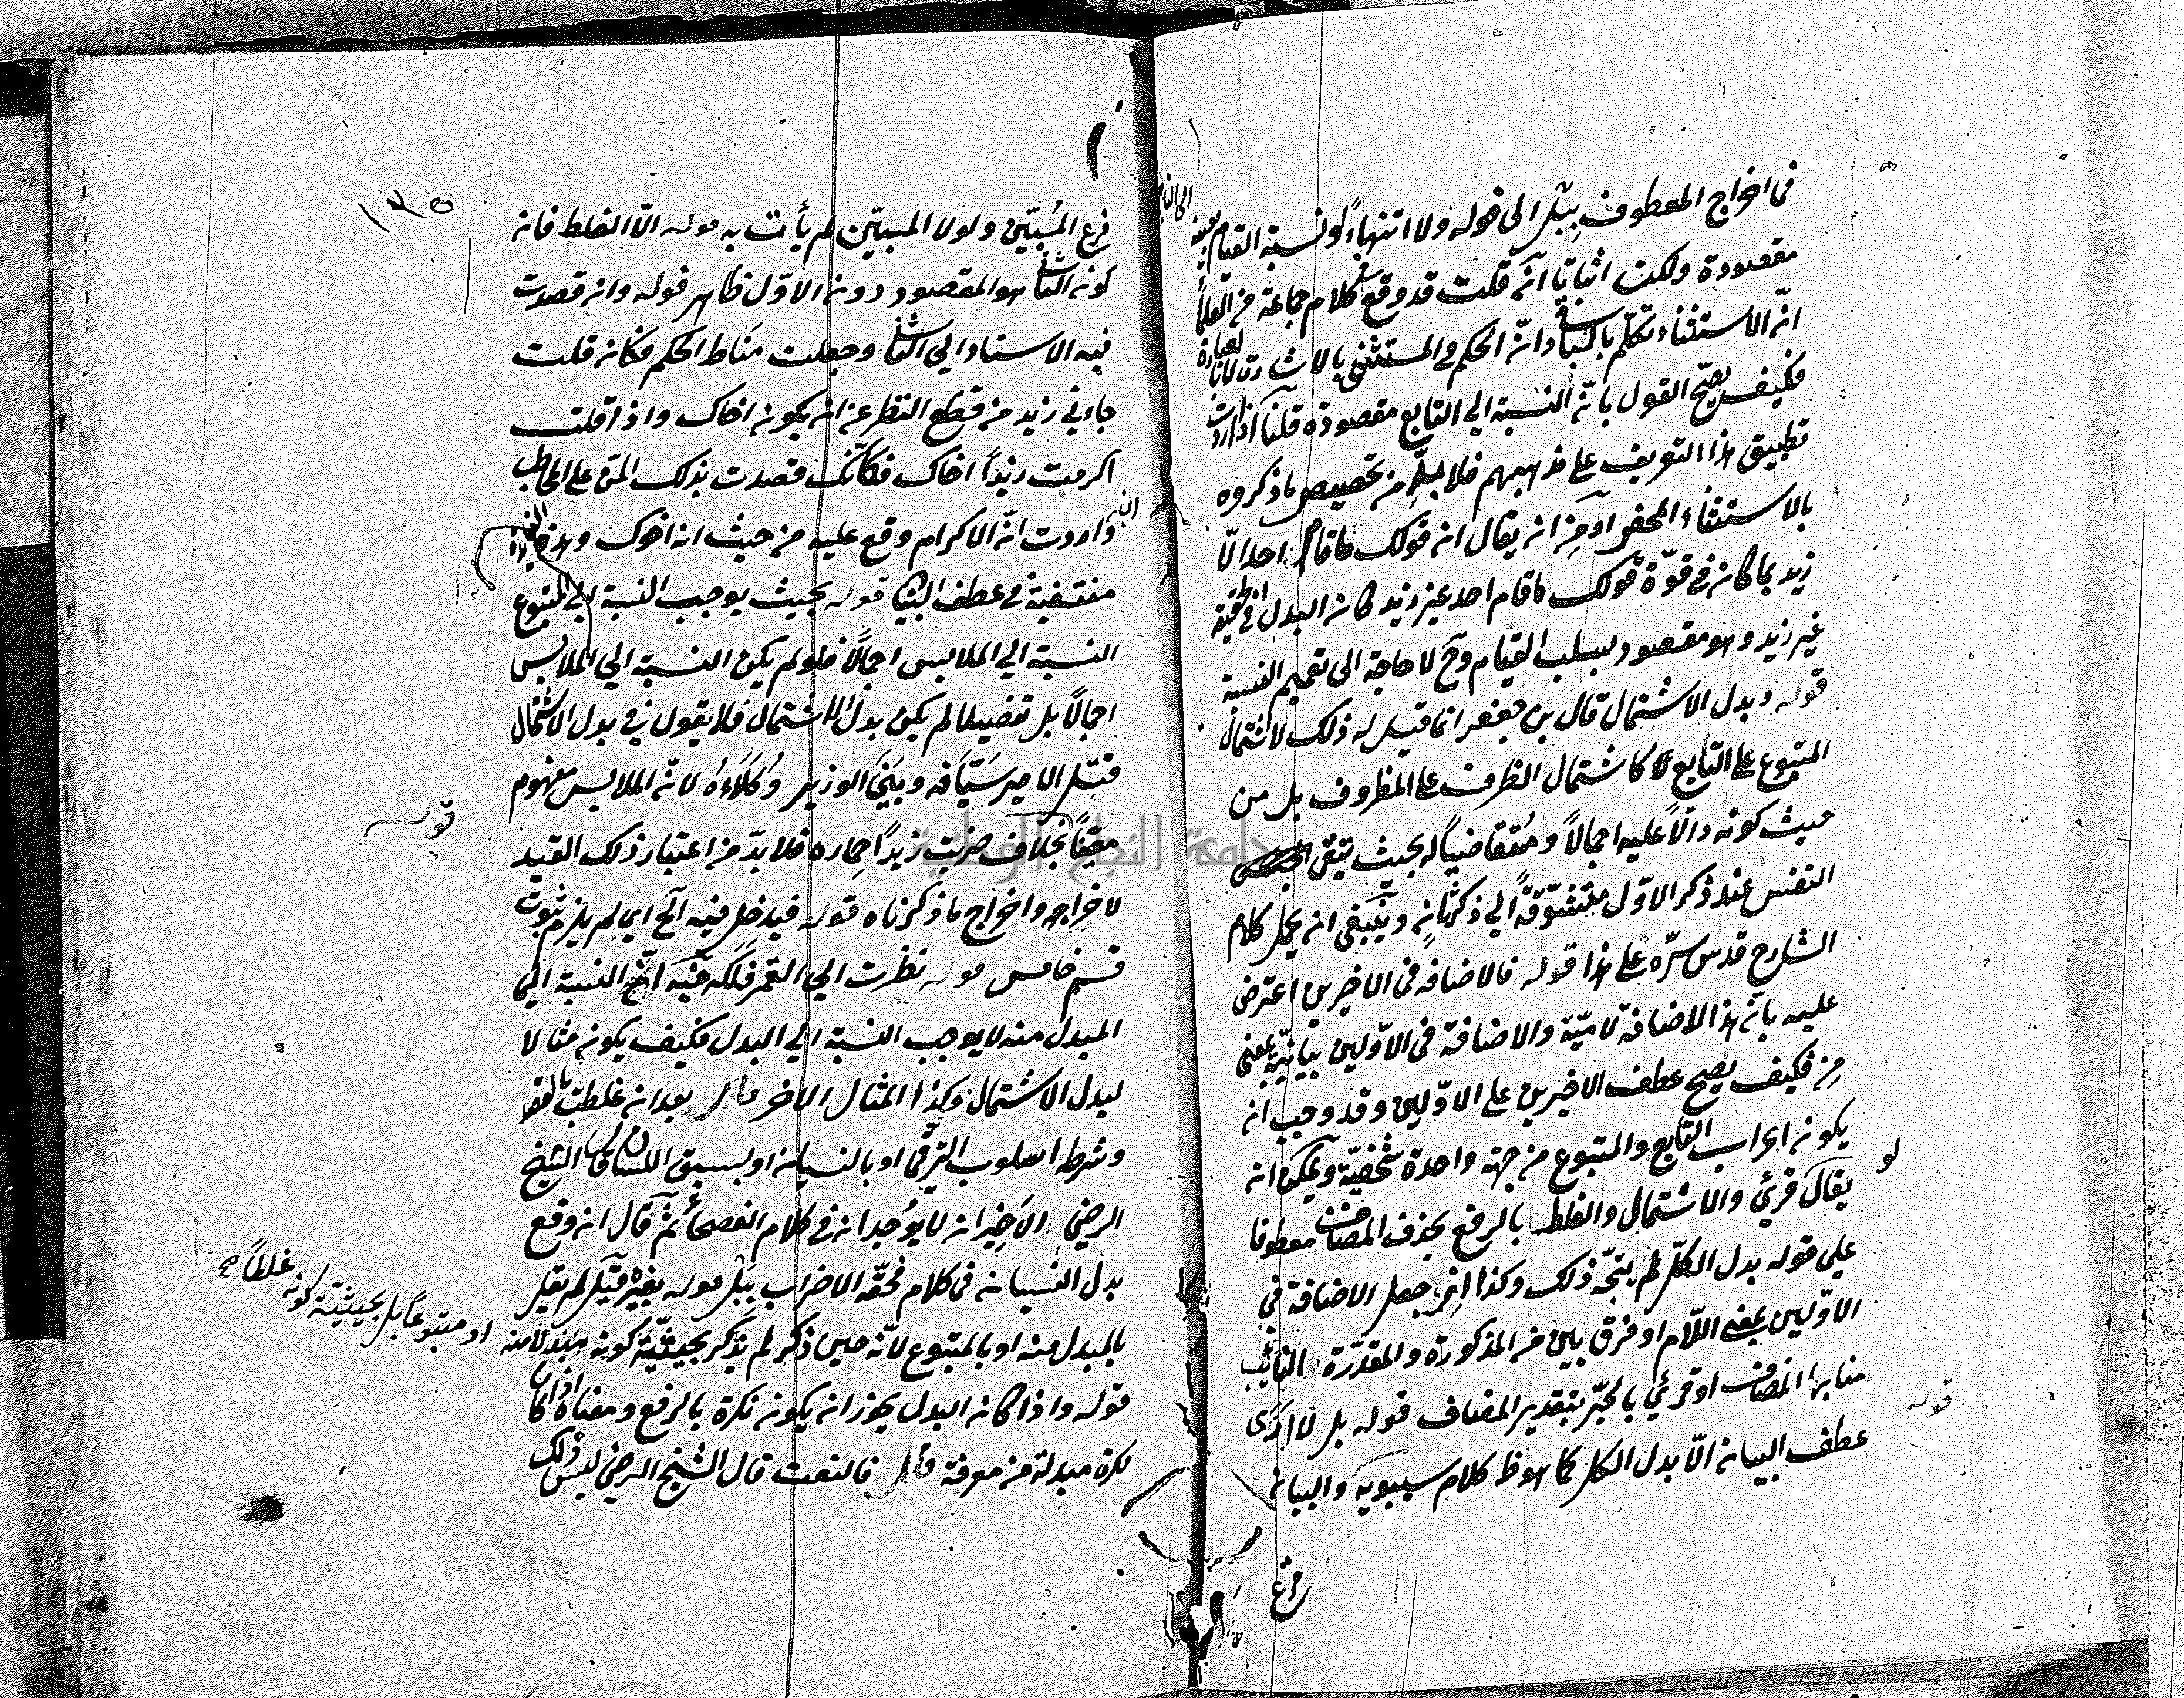 في اخراج المعطوف ببل الى قوله ولا انتهاء لو نسبة القيام
مقصودة ولكن اثباتا آه قلت قد وقع في كلام جماعة من العلماء
انّ الاستثناء تكلّم بالباقي وانّ الحكم في المستثنى بالاشارة لا بالعبارة
فكيف يصحّ القول بانّ النسبة الي التابع مقصودة قلنا اذا اردت
تطبيق هذا التعريف على مذهبهم فلا بدّ من تخصيص ما ذكروه
بالاستثناء المحض او من ان يقال ان قولك ما قام احد الّا
زيد بما كان في قوّة قولك ما قام احد غير زيد كان البدل في الحقيقة
غير زيد وهو مقصود بسلب القيام وح لا حاجة الى تعميم النسبة
قوله وبدل الاشتمال قال بن جعفر انما قيل له ذلك لاشتمال
المتبوع على التابع لا كاشتمال الظرف على المظروف بل من
حيث كونه دالّاً عليه اجمالاً ومتقاضياً له بحيث تبقى
النفس عند ذكر الاوّل متشوّقة الي ذكر ثانٍ وينبغي ان يحمل كلام
الشارح قدس سرّه على هذا قوله فالاضافة في الاخيرين اعترض
عليه بانّ هذا الاضافة لاميّة والاضافة في الاوّلين بيانيّة بمعنى
من فكيف يصح عطف الاخيرين على الاوّلين وقد وجب ان
يكون اعراب التابع والمتبوع من جهة واحدة شخصيّة ويمكن ان
يقال لو قرئ والاشتمال والغلط بالرفع بحذف المضاف معطوفا
علي قوله بدل الكلّ لم يتجّه ذلك وكذا ان جعل الاضافة في
الاوّلين بمعنى اللام او فرق بين من المذكورة والمقدّرة النائب
منابها المضاف او قرئ بالجرّ بتقدير المضاف قوله بل لا ارى
عطف البيان الّا بدل الكل كما هو ظ كلام سيبويه والبيان
فرع
١٣٥
فرع المُبيّن ولولا المبيّن لم يأت به قوله الّا الغلط فان
كون الثاني هو المقصود دون الاوّل ظاهر قوله وان قصدت
فيه الاسناد الي الثاني وجعلت مناط الحكم فكان قلت
جاءني زيد من قطع النظر عن ان يكون اخاك واذا قلت
اكرمت زيداً اخاك فكانّك قصدت بذلك المنّ على المخاطب
واردت انّ الاكرام وقع عليه من حيث انه اخوك وهذه
منتفية في عطف البيان قوله بحيث يوجب النسبة الي المتبوع
النسبة الي الملابس اجمالاً فلو لم يكن النسبة الي الملابس
اجمالاً بل تفصيلا لم يكن بدل الاشتمال فلا يقول في بدل الاشتمال
قتل الامير سيّافه وبنى الوزير وكلاءه لانّ الملابس مفهوم
معيّناً بخلاف ضربت زيداً حماره فلا بدّ من اعتبار ذلك القيد
لاخراجه واخراج ما ذكرناه قوله فيدخل فيه آلخ اي لم يلزم ثبوت
قسم خامس قوله نظرت الي القمر فلكه فيه انّ النسبة الي
المبدل منه لا يوجب النسبة الي البدل فكيف يكون مثالا
لبدل الاشتمال وكذا المثال الاخر قال بعد ان غلطت بالقصد
وشرطه اسلوب الترقّى او بالنسيان او بسبق اللسان قال الشيخ
الرضي الاخير ان لا يوجدان في كلام الفصحاء ثم قال ان وقع
بدل النسيان في كلام فحقّه الاضراب ببل قوله بغيره قيل لم يقل
بالمبدل منه او بالمتبوع لانّه حين ذكر لم يذكر بحيثيّة كونه مبدلا منه او متبوعاً بل بحيثية كونه غلطاً
قوله واذا كان البدل يجوز ان يكون نكرة بالرفع ومعناه اذا كان
نكرة مبدلة من معرفة قال فالنعت قال الشيخ الرضي ليس ذلك